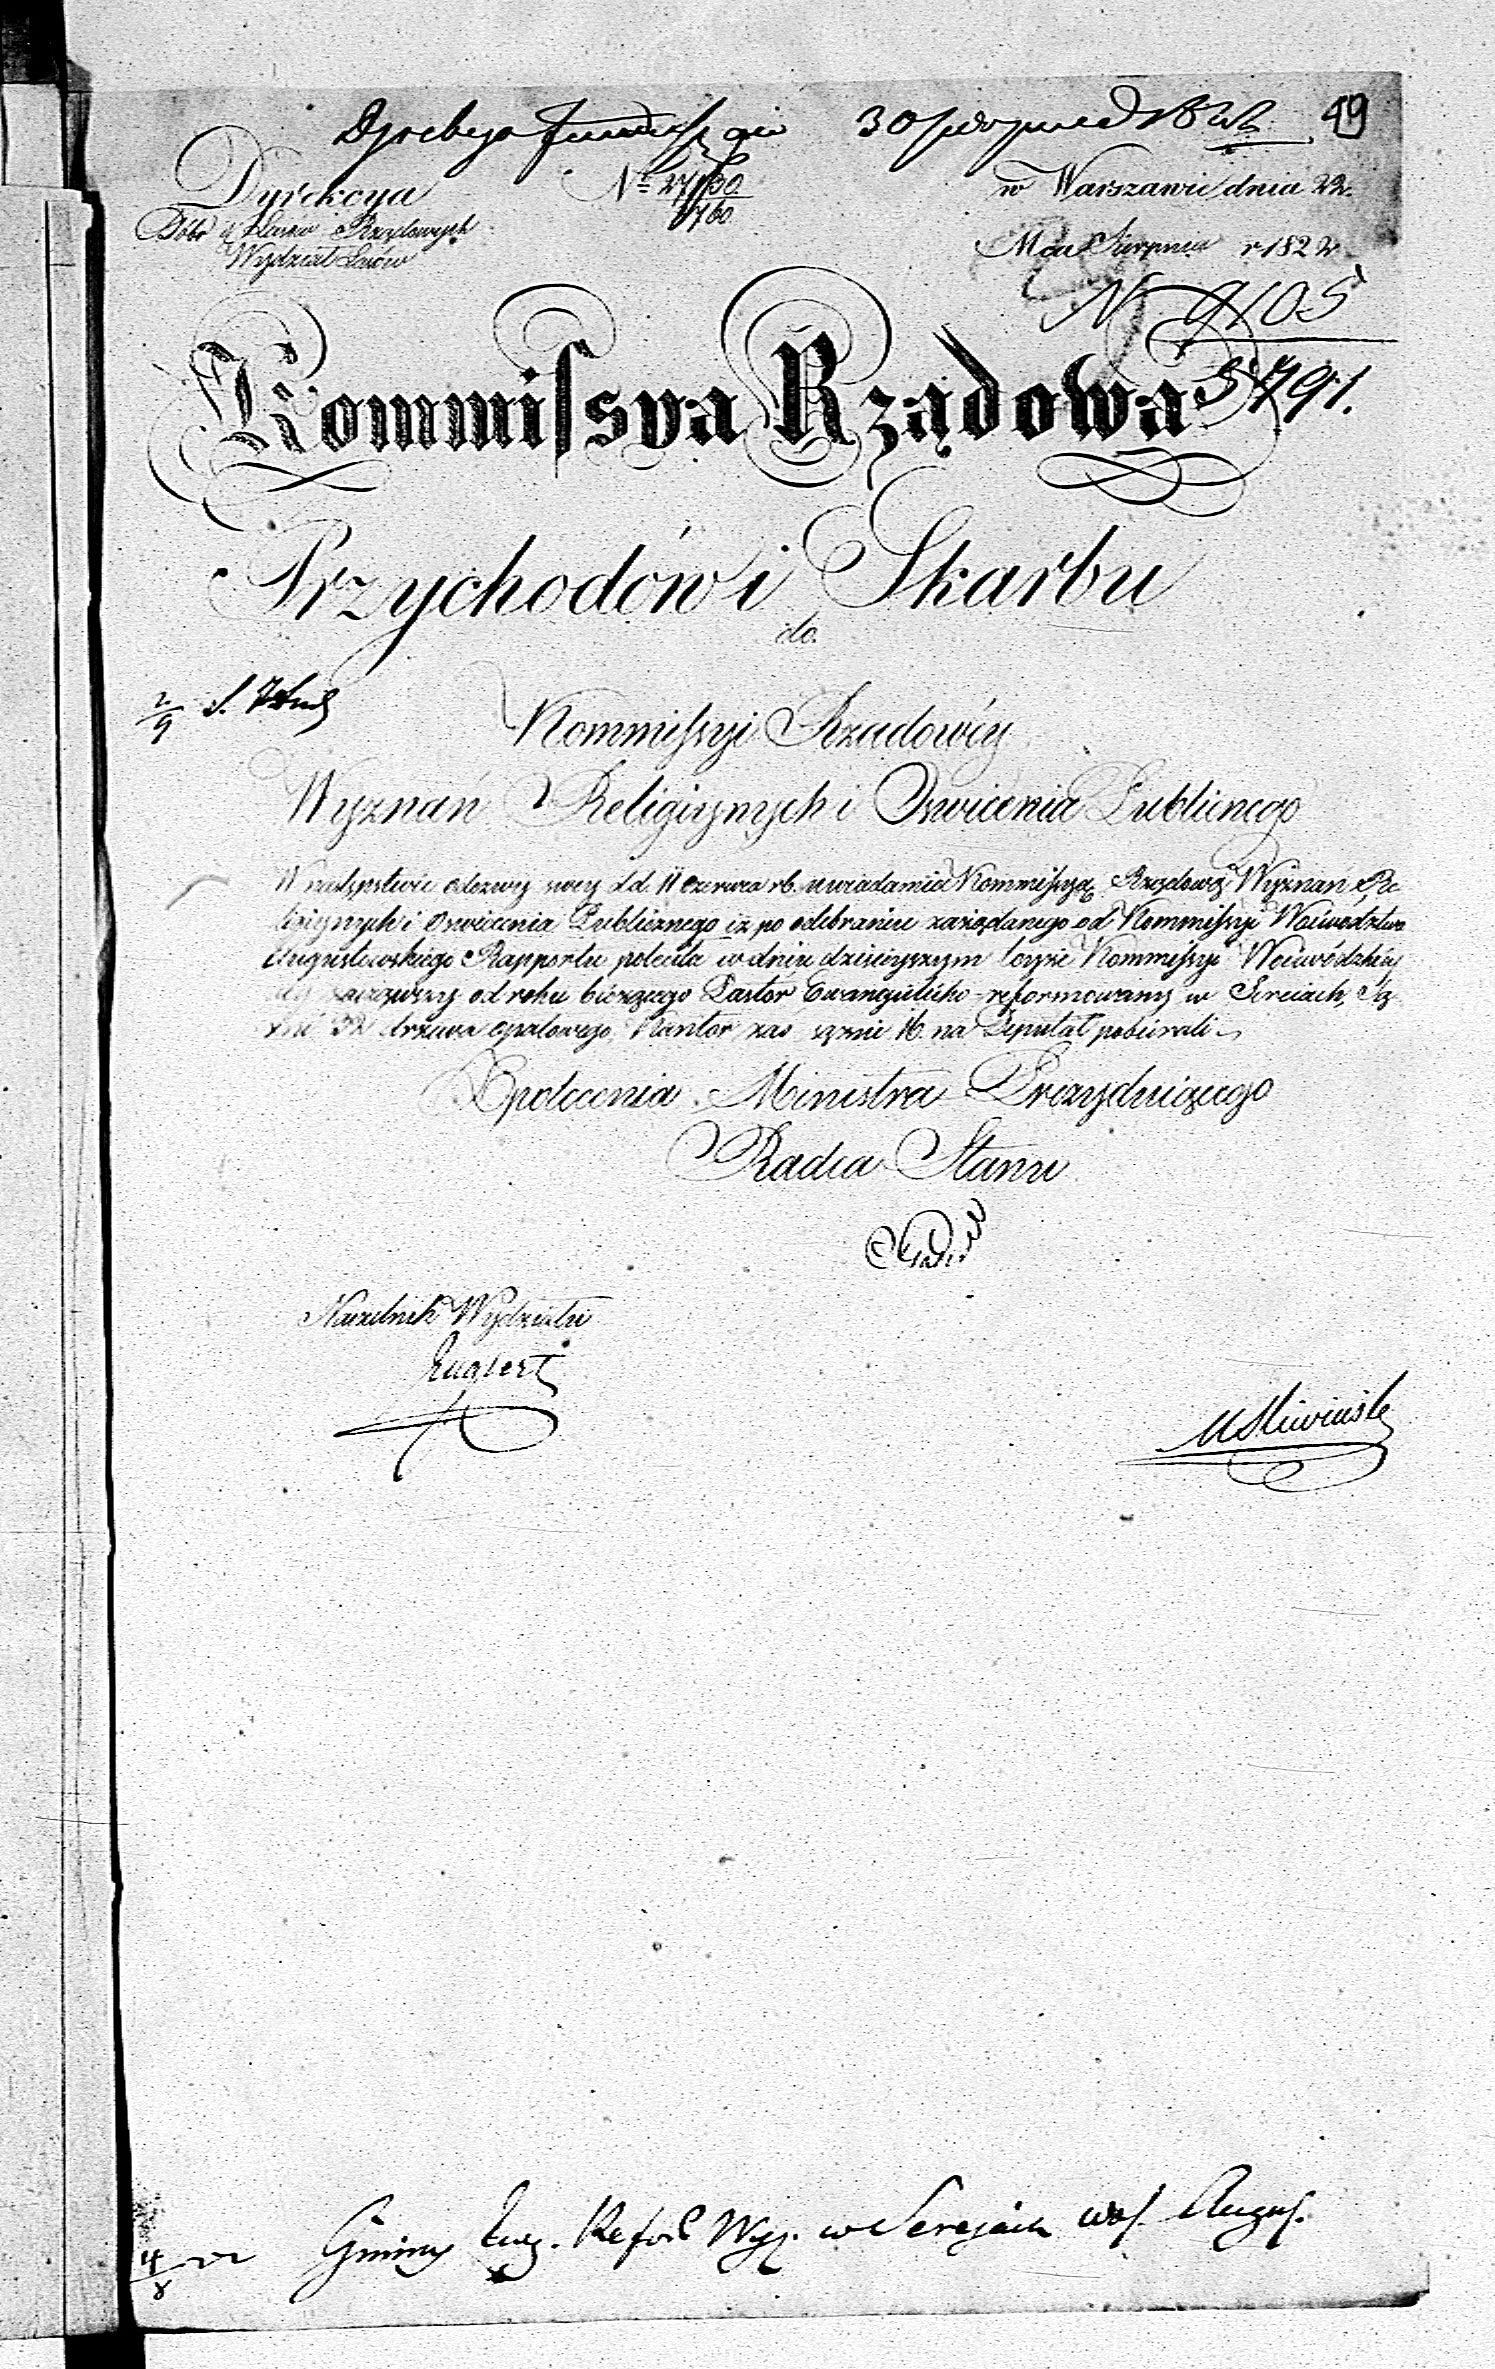 30 1822 49
Dyrekcya Nº w Warszawie dnia 22
Dóbr i Lasów Rządowych
Wydział Lasów Mca Sierpnia r 1822
N 9105
5791.
Kommissya Rządowa
Przychodów i Skarbu
do
2/9
Kommissyi Rządowéy
Wyznań Religiynych i Oswiecenia Publicznego
W następstwie odezwy swey d.d. 11 Czerwca rb. uwiadamia Kommissyą Rządową Wyznań Re
ligiynych i Oswiecenia Publicznego iż po odebraniu zażądanego od Kommissyi Woiewództwa
Augustowskiego Rapportu poleciła w dniu dzisieyszym teyże Kommissyi Woiewódzkiey
zacząwszy od roku bieżącego Pastor Ewangelicko-reformowany w Sereiach, Są
żni 32 drzewa opałowego, Kantor zaś sążni 16. na Deputat pobierali
Z polecenia Ministra Prezyduiącego
Radca Stanu
Naczelnik Wydziału
Engbert
4/X Gminy Ewg. Refor Wyz. w Serejach woj. Augus.